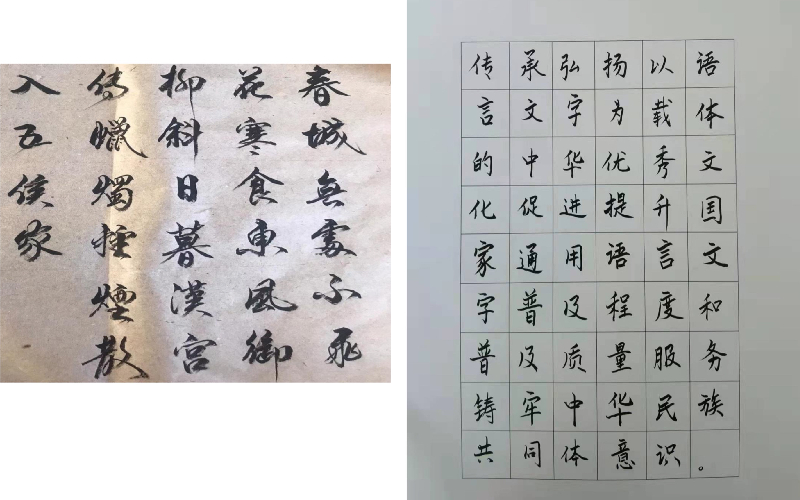 春城無處不飛
花寒食東風御
柳斜日暮漢宮
傳蠟燭輕煙散
入五侯家
传承弘扬以语
言文字为载体
的中华优秀文
化促进提升国
家通用语言文
字普及程度和
普及质量服务
铸牢中华民族
共同体意识。